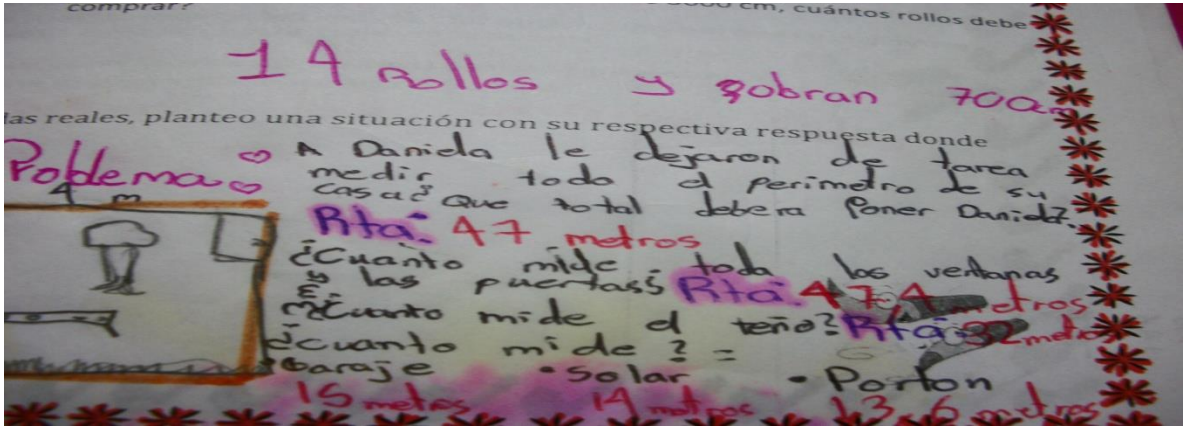 comprar?
cm, cuántos rollos debe
14 Rollos y sobran 700cm
las reales, planteo una situación con su respectiva respuesta donde
Problema
4 m
A Daniela le dejaron de tarea
medir todo el Perimetro de su
casa¿ Que total debera Poner Daniela?
Rta: 47 metros
¿Cuanto mide toda los ventanas
y las puertass Rta: 47,4 metros
¿Cuanto mide el teño? Rta: 32 metros
¿cuanto mide ? =
Garaje • Solar • Porton
15 metros 14 metros 13,6 metros